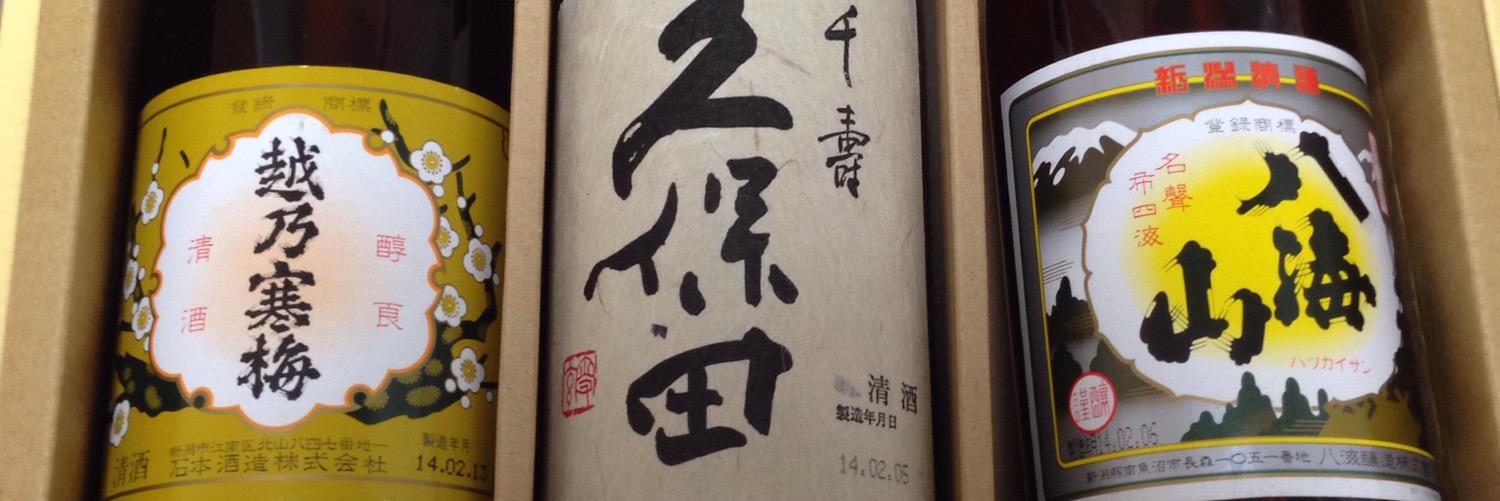 登録 商標
越乃寒梅
醇良
清酒
新潟市江南区北山八四七番地一
製造年月
清酒 石本酒造株式会社 14.02.13
千壽
久保田
清酒
製造年月日
14.02.05
新潟清酒
登録商標
八海山
名聲
布四海
ハツカイサン
謹醸
製造年月日 14.02.06
新潟県南魚沼市長森一〇五一番地 八海醸造株式